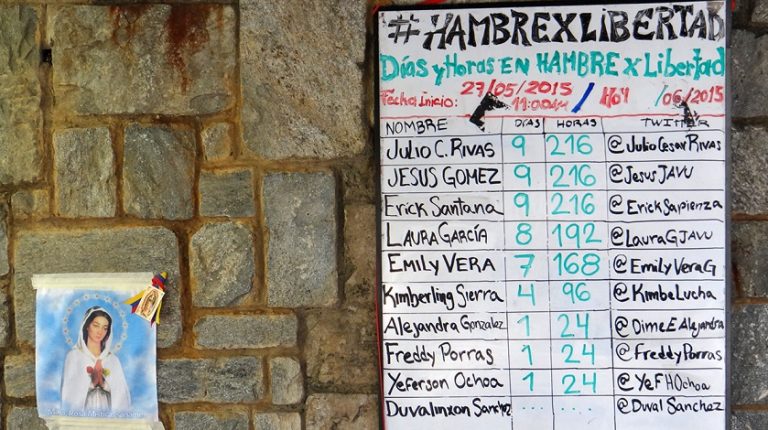 #HAMBREXLIBERTAD
Días y Horas EN HAMBRE x Libertad
27/05/2015
Fecha inicio: 11:00AM / Hoy /06/2015
NOMBRE DÍAS HORAS TWITTER
JULIO C. RIVAS 9 216 @JulioCesarRivas
JESUS GOMEZ 9 216 @JesusJAVU
Erick Santana 9 216 @ErickSapienza
LAURA GARCÍA 8 192 @LauraGJAVU
EMILY VERA 7 168 @EmilyVeraG
Kimberling Sierra 4 96 @KimbeLucha
Alejandra Gonzalez 1 24 @DimeEAlejandra
Freddy Porras 1 24 @FreddyPorras
Yeferson Ochoa 1 24 @YeFHOchoa
Duvalinxon Sanchez .... .... @Dwal Sanchez